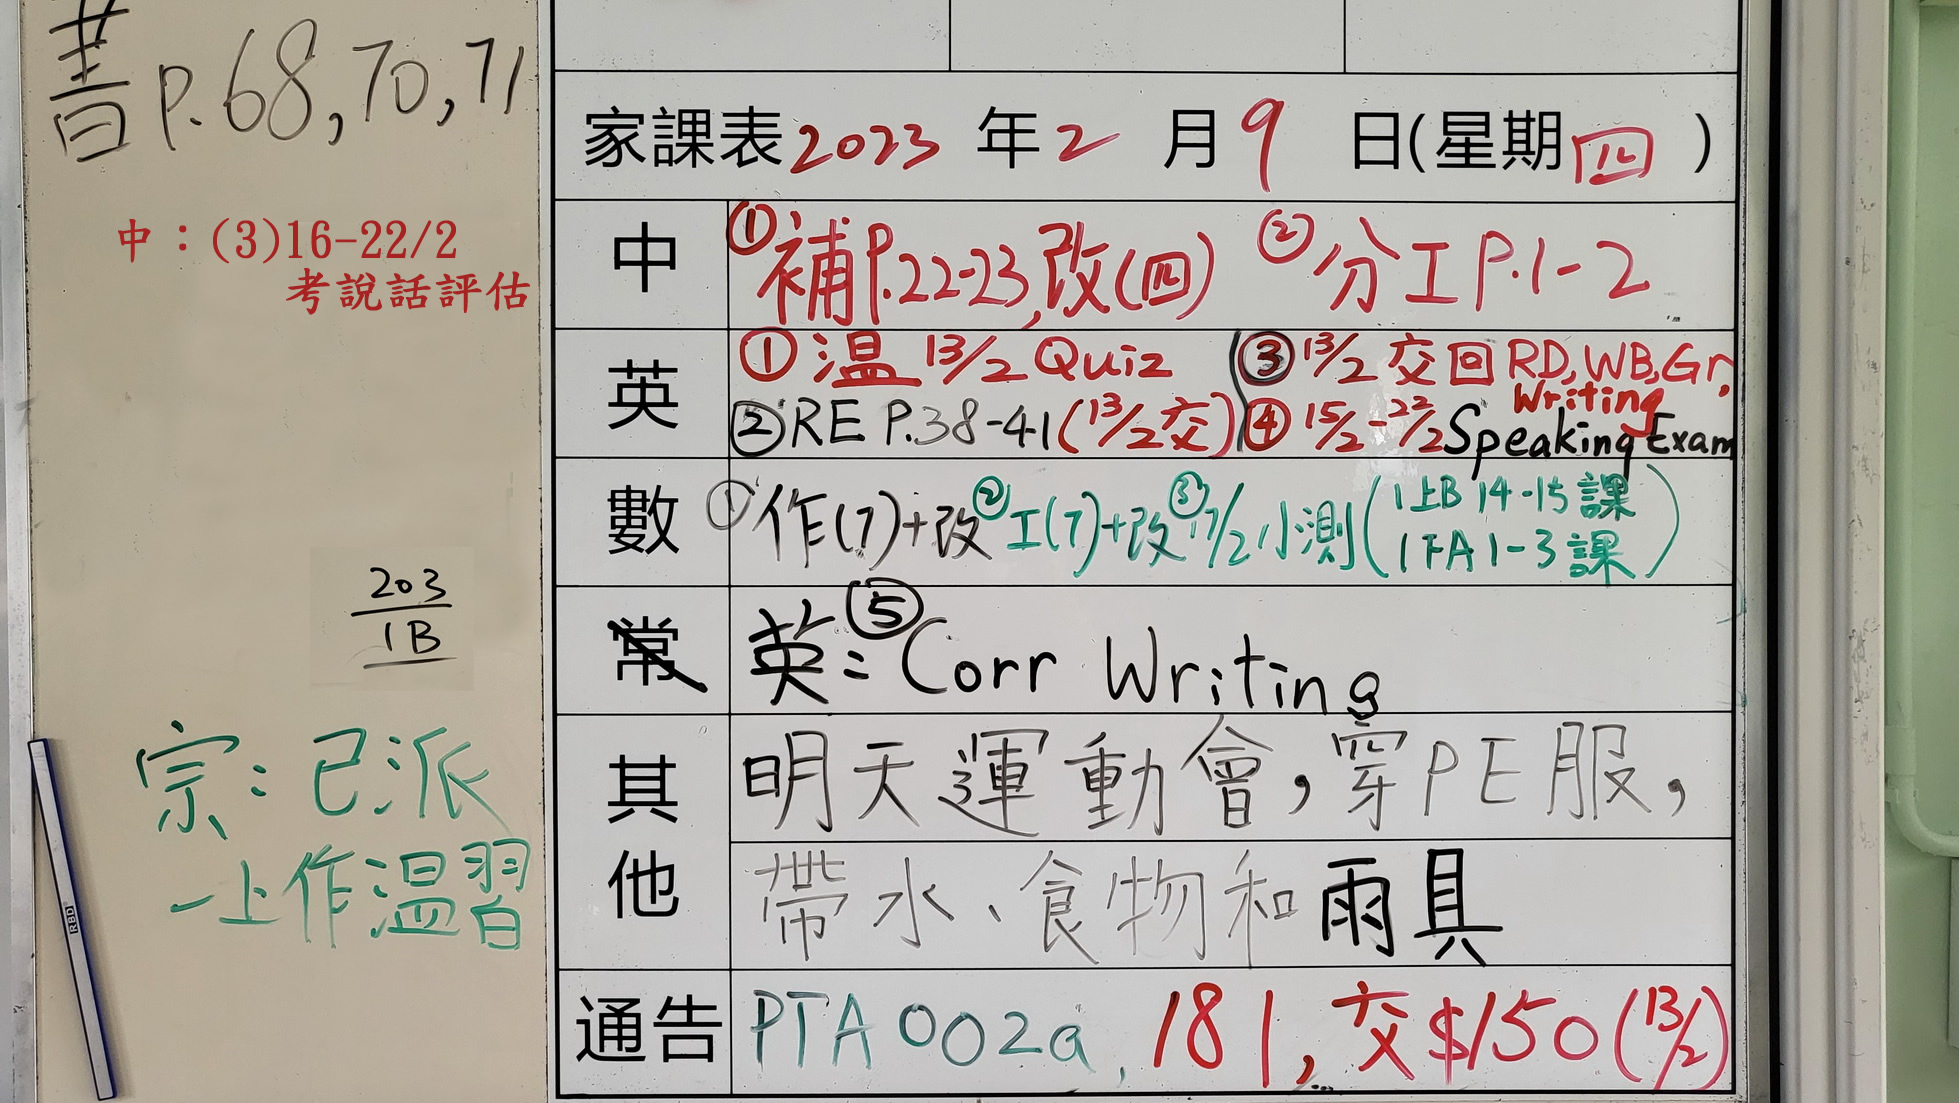 書P.68,70,71
中：(3)16-22/2
考說話評估
203
1B
宗：已派
一上作溫習
RBD
家課表2023年2月9日(星期四)
中 ①補P.22-23,改(四) ②分工P.1-2
英 ①溫13/2 Quiz ③13/2交回RD,WB,Gr,
Writing
②RE P.38-41(13/2交) ④15/2-22/2 Speaking Exam
數 ①作(7)+改 ②工(7)+改 ③17/2小測(1上B 14-15課
1下A 1-3課)
常 英：⑤Corr Writing
其他 明天運動會，穿PE服，
帶水、食物和雨具
通告 PTA 002a, 181, 交$150(13/2)